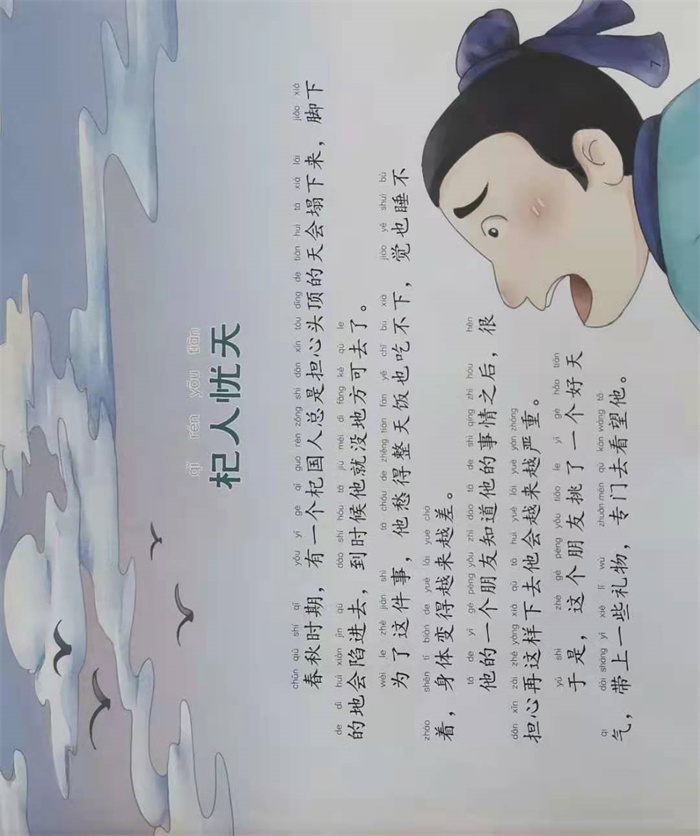 qǐ rén yōu tiān
杞人忧天
chūn qiū shí qī yǒu yí gè qǐ guó rén zǒng shì dān xīn tóu dǐng de tiān huì tā xià lái jiǎo xià
春秋时期，有一个杞国人总是担心头顶的天会塌下来，脚下
de dì huì xiàn jìn qù dào shí hòu tā jiù méi dì fāng kě qù le
的地会陷进去，到时候他就没地方可去了。
wèi le zhè jiàn shì tā chóu de zhěng tiān fàn yě chī bú xià jiào yě shuì bù
为了这件事，他愁得整天饭也吃不下，觉也睡不
zháo shēn tǐ biàn de yuè lái yuè chà
着，身体变得越来越差。
tā de yí gè péng yǒu zhī dào tā de shì qing zhī hòu hěn
他的一个朋友知道他的事情之后，很
dān xīn zài zhè yàng xià qù tā huì yuè lái yuè yán zhòng
担心再这样下去他会越来越严重。
yú shì zhè gè péng yǒu tiāo le yí gè hǎo tiān
于是，这个朋友挑了一个好天
qì dài shàng yì xiē lǐ wù zhuān mén qù kàn wàng tā
气，带上一些礼物，专门去看望他。
7